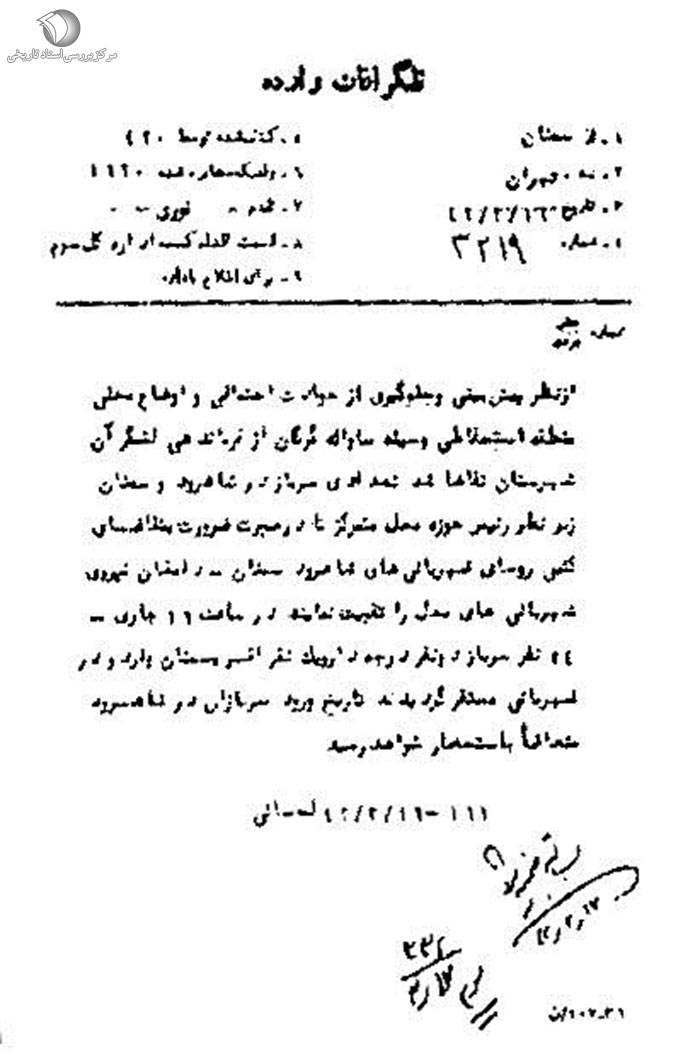 مرکز بررسی اسناد تاریخی
تلگرافات وارده
۱ـ از سمنان
۲ـ به تهران
۳ـ تاریخ ۴۲/۲/۱۶
۴ـ شماره ۳۲۱۹
۵ـ کشف شده توسط ۴۲۰
۶ـ
۷ـ تقدم ـ فوری ـ
۸ـ قسمت اقدام کننده اداره کل سوم
۹ـ برای اطلاع
شماره
ازنظر پیش بینی وجلوگیری از حوادث احتمالی و اوضاع محلی
منطقه استحفاظی وسیله ساواک گرگان از فرماندهی لشگر آن
شهرستان تقاضا شد تعدادی سرباز در شاهرود و سمنان
زیر نظر رئیس حوزه محل متمرکز تا در صورت ضرورت بتقاضای
کتبی روسای شهربانی های شاهرود سمنان ـ دامغان نیروی
شهربانی های محل را تقویت نمایند در ساعت ۱۶ جاری ـ
۲۴ نفر سرباز دونفر درجه دار ویک نفر افسر بسمنان وارد و در
شهربانی مستقر گردیدند تاریخ ورود سربازان در شاهرود
متعاقباً باستحضار خواهد رسید
۱۶۱ـ۴۲/۲/۱۶
۴۲/۲/۱۷
۳۳۴